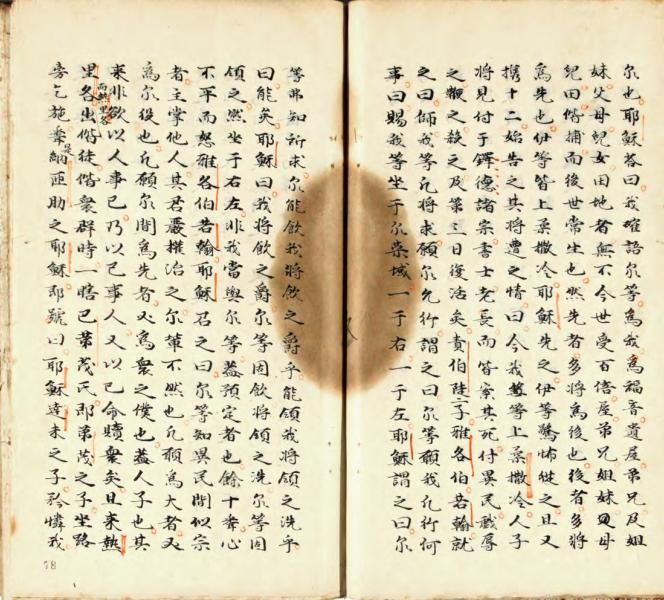 尔也耶穌荅曰我確語尔等為我為福音遺屋弟兄及姐
妹父母兒女田地者無不今世受百倍屋弟兄姐妹及母
兒田偕捕而後世常生也然先者多將為後也後者多將
為先也伊等皆上柔撒冷耶穌先之伊等驚怖從之且又
携十二始告之其將遭之情曰今我等上柔撒冷人子
將見付于鐸德諸宗書士老長而皆案其死付異民戲辱
之鞭之殺之及第三日復活矣責伯陡二子雅各伯若翰就
之曰師我等凢將求願尔允行謂之曰尔等願我凢行何
事曰賜我等坐于尔榮域一于右一于左耶穌謂之曰尔
等弗知所求尔能飲我將飲之爵乎能領我將領之洗乎
曰能矣耶穌曰我將飲之爵尔等固飲將領之洗尔等固
領之然坐于右左非我當與尔等葢預定者也餘十輩心
不平而怒雅各伯若翰耶穌召之曰尔等知異民間似宗
者主掌他人其君嚴權治之尔輩不然也凢願為大者必
為尔役也凢願尔間為先者必為衆之僕也葢人子也其
來非欲以人事己乃以己事人又以己命贖衆矣且来熱
里各而熱里各出偕徒偕衆群時一瞎巴苐茂氏即苐茂之子坐路
旁乞施棄是納匝助之耶穌即號曰耶穌達未之子矜憐我
78